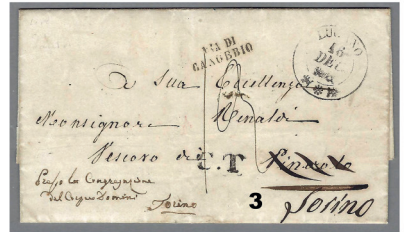 VIA DI
CANOBBIO
LUGANO
16
DEC
a Sua Eccellenza
Monsignore Rinaldi
Vescovo di Pinerolo
C.T
Presso la Congregazione
del Corpus Domini
Torino
3
Torino